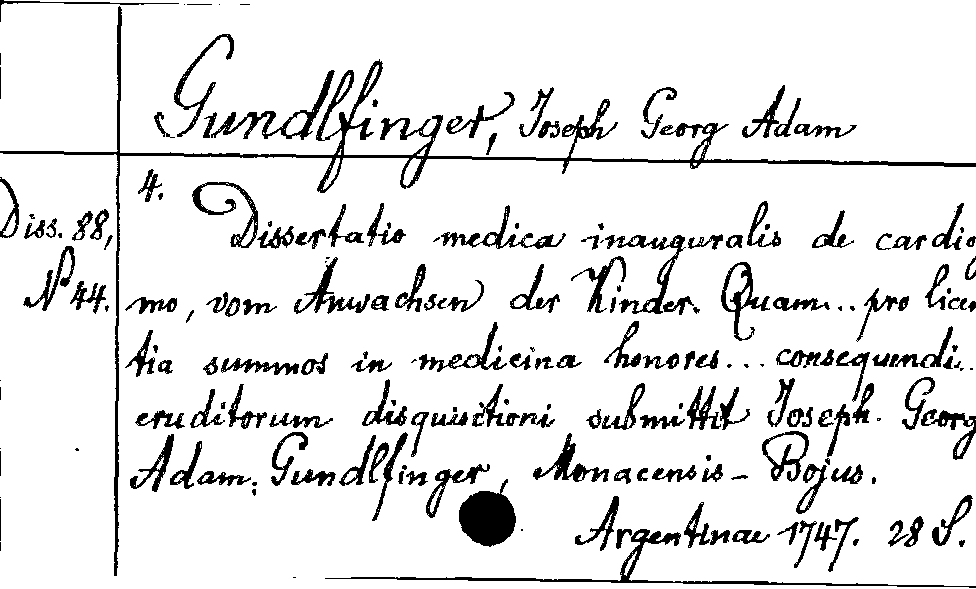 Gundlfinger, Joseph Georg Adam
4.
Diss. 88,
No 44.
Dissertatio medica inauguralis de cardiog
mo, vom Anwachsen der Kinder. Quam... pro licen
tia summos in medicina honores... consequendi..
eruditorum disquisitioni submittit Joseph. Georg
Adam. Gundlfinger, Monacensis - Bojus.
Argentinae 1747. 28 S.